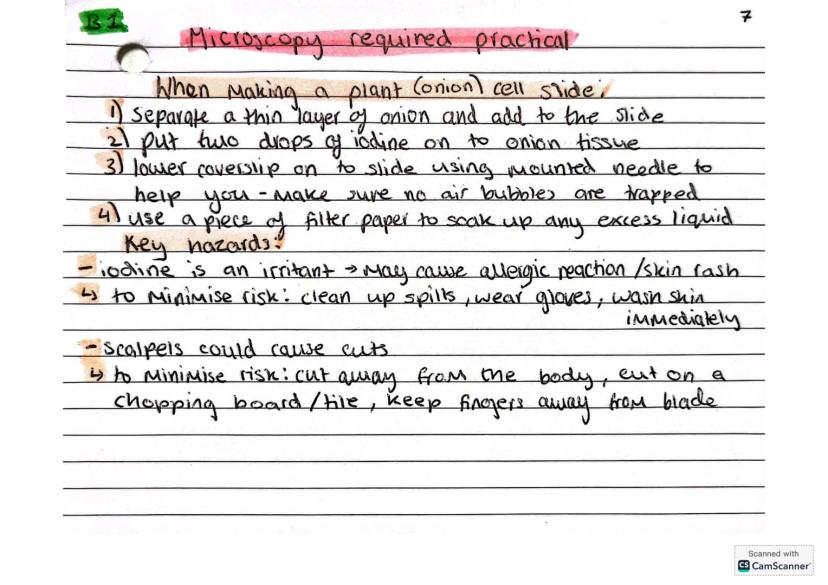 B1
7
Microscopy required practical
When making a plant (onion) cell slide:
1) Separate a thin layer of onion and add to the slide
2) put two drops of iodine on to onion tissue
3) lower coverslip on to slide using mounted needle to
help you - make sure no air bubbles are trapped
4) use a piece of filter paper to soak up any excess liquid
Key hazards:
- iodine is an irritant → may cause allergic reaction / skin rash
↳ to minimise risk: clean up spills, wear gloves, wash skin
immediately
- scalpels could cause cuts
↳ to minimise risk: cut away from the body, cut on a
chopping board / tile, keep fingers away from blade
Scanned with
CS CamScanner